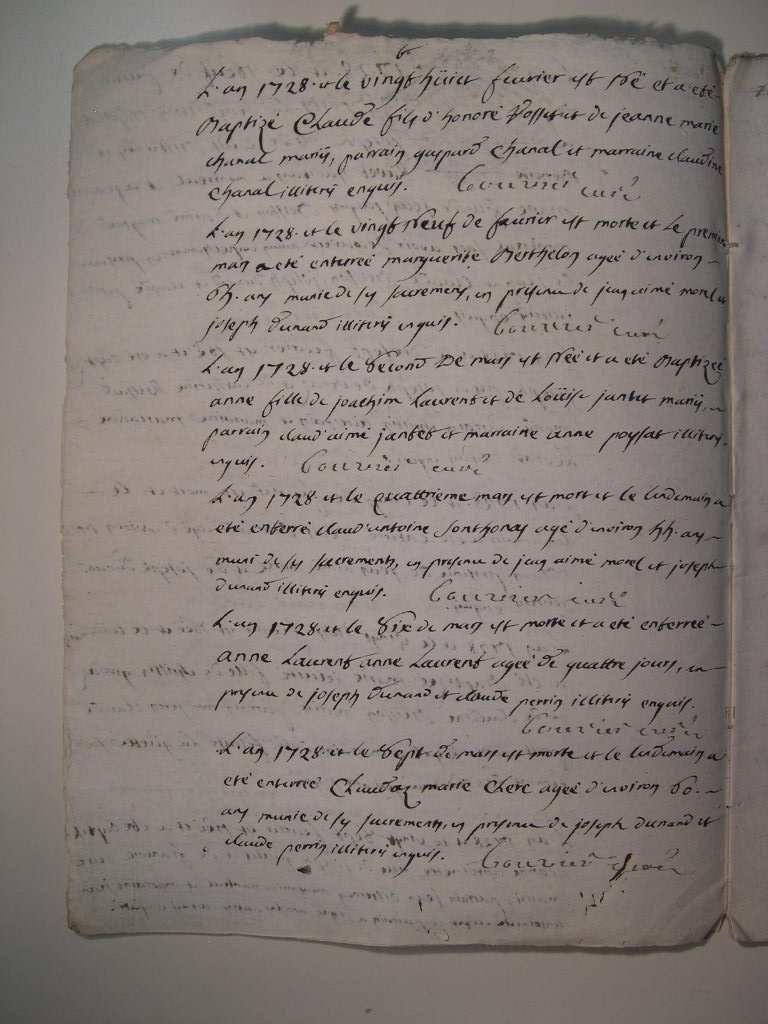 6
L'an 1728 et le vingt huict feuvrier est née et a eté
Baptizé Claude fils d'honoré et de jeanne marie
chanal mariis, parrain gaspard chanal et marraine claudine
chanal illiteris enquis. Couvier curé
L'an 1728 et le vingt neuf de feuvrier est morte et le premier
mars a eté enterreé marguerite Berthelon ageé d'environ
ans munie de ses sacremens, en presence de jean aimé morel et
joseph Dunand illiteris enquis. Couvier curé
L'an 1728 et le second De mars est née et a eté Baptizeé
anne fille de joachim Laurent et de Loüise jantet mariis,
parrain claud'aimé jantet et marraine anne poysat illiteris
enquis. Couvier curé
L'an 1728 et le quattrieme mars est mort et le lendemain a
eté enterré claud'antoine Sonthonas agé d'environ ans
muni de ses sacremens, en presence de jean aimé morel et joseph
Dunand illiteris enquis. Couvier curé
L'an 1728 et le six de mars est morte et a eté enterreé
anne Laurent anne Laurent ageé de quattre jours, en
presence de joseph Dunand et claude perrin illiteris enquis.
Couvier curé
L'an 1728 et le sept de mars est morte et le lendemain a
eté enterreé Claudaz marie Clerc ageé d'environ 60
ans munie de ses sacremens, en presence de joseph Dunand et
claude perrin illiteris enquis. Couvier curé